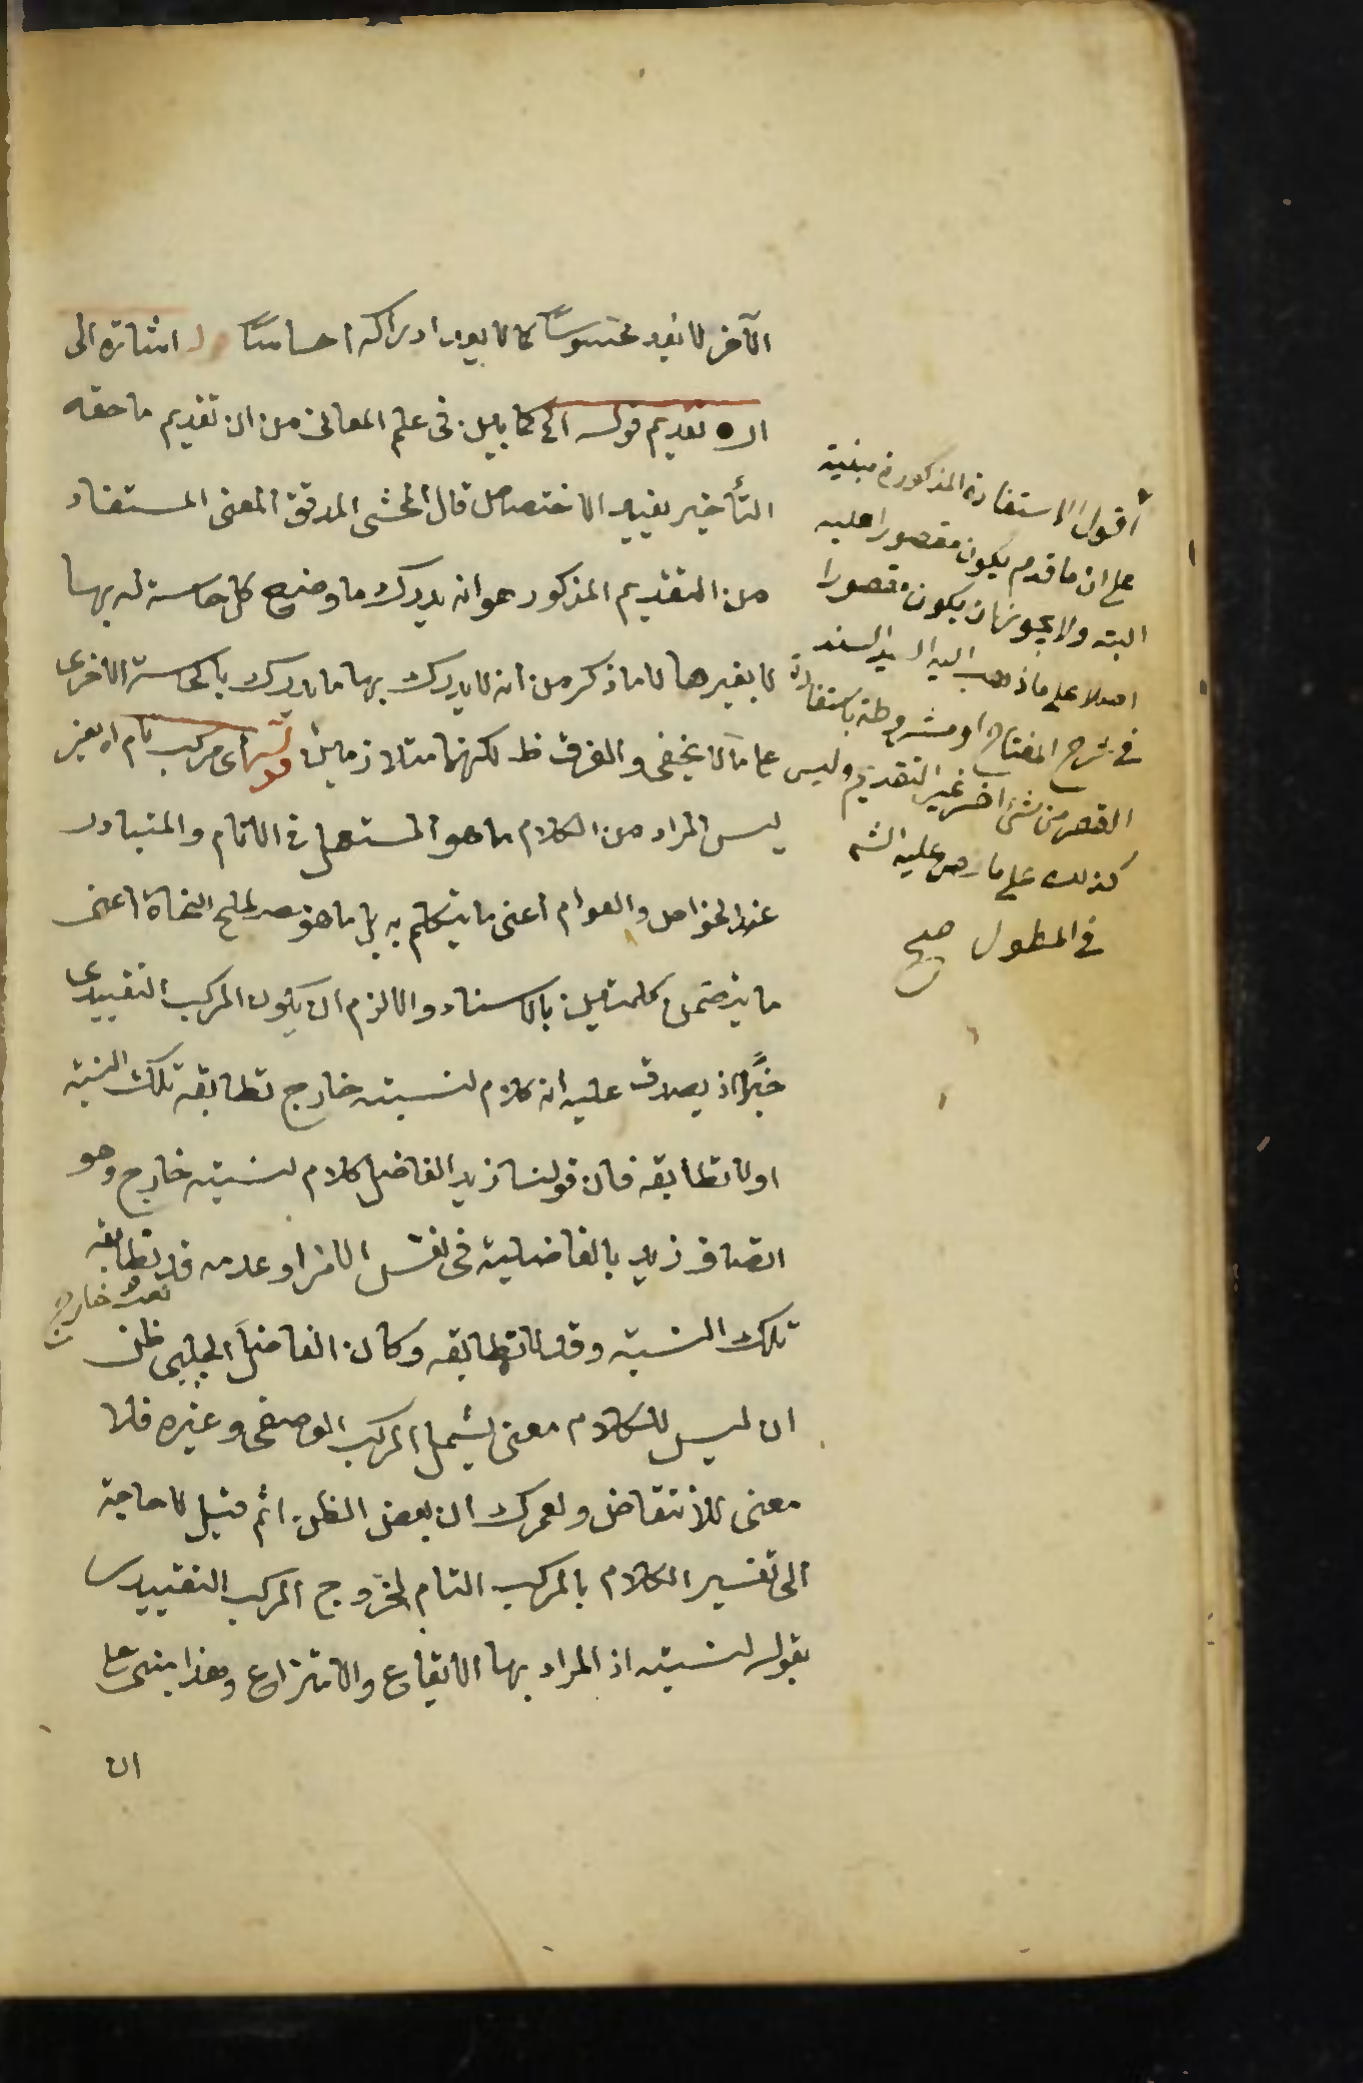 الآخر لا يعد محسوسًا كما لا يعد ادراكه احساسًا اشارة الى
ان تقديم قوله الخ كما يبين فى علم المعانى من ان تقديم ما حقه
التأخير يفيد الاختصاص قال المحشى المدقق المعنى المستفاد
من التقديم المذكور هو انه يدرك ما وضع كل حاسة له بها
لا بغيرها لا ما ذكر من انه لا يدرك بها ما يدرك بالحاسة الاخرى
على ما لا يخفى والفرق ظ لكنهما متلازمين قوله اى مركب تام اه يعنى
ليس المراد من الكلام ما هو المستعمل فى الانام والمتبادر
عند الخواص والعوام اعنى ما يتكلم به بل ما هو مصطلح النحاة اعنى
ما يتضمن كلمتين بالاسناد والا لزم ان يكون المركب التقييدى
خبرًا اذ يصدق عليه انه كلام لنسبته خارج تطابقه تلك النسبة
اولا تطابقه فان قولنا زيد الفاضل كلام لنسبته خارج وهو
اتصاف زيد بالفاضلية فى نفس الامر او عدمه قد تطابقه
خارج
تلك النسبة وقد لا تطابقه وكان الفاضل الچلبى ظن
ان ليس للكلام معنى يشمل المركب الوصفى وغيره فلا
معنى للانتقاض ولعمرك ان بعض الظن اثم قيل لا حاجة
الى تفسير الكلام بالمركب التام لخروج المركب التقييدى
بقوله لنسبته اذ المراد بها الايقاع والانتزاع وهذا مبنى على
ان
أقول الاستفادة المذكورة مبنية
على ان ما قدم يكون مقصورا عليه
البته ولا يجوز ان يكون مقصورا
اصلا على ما ذهب اليه السيد السند
فى شرح المفتاح او مشروطة باستفادة
القصر من شئ اخر غير التقديم وليس
كذلك على ما نص عليه الش
فى المطول صح